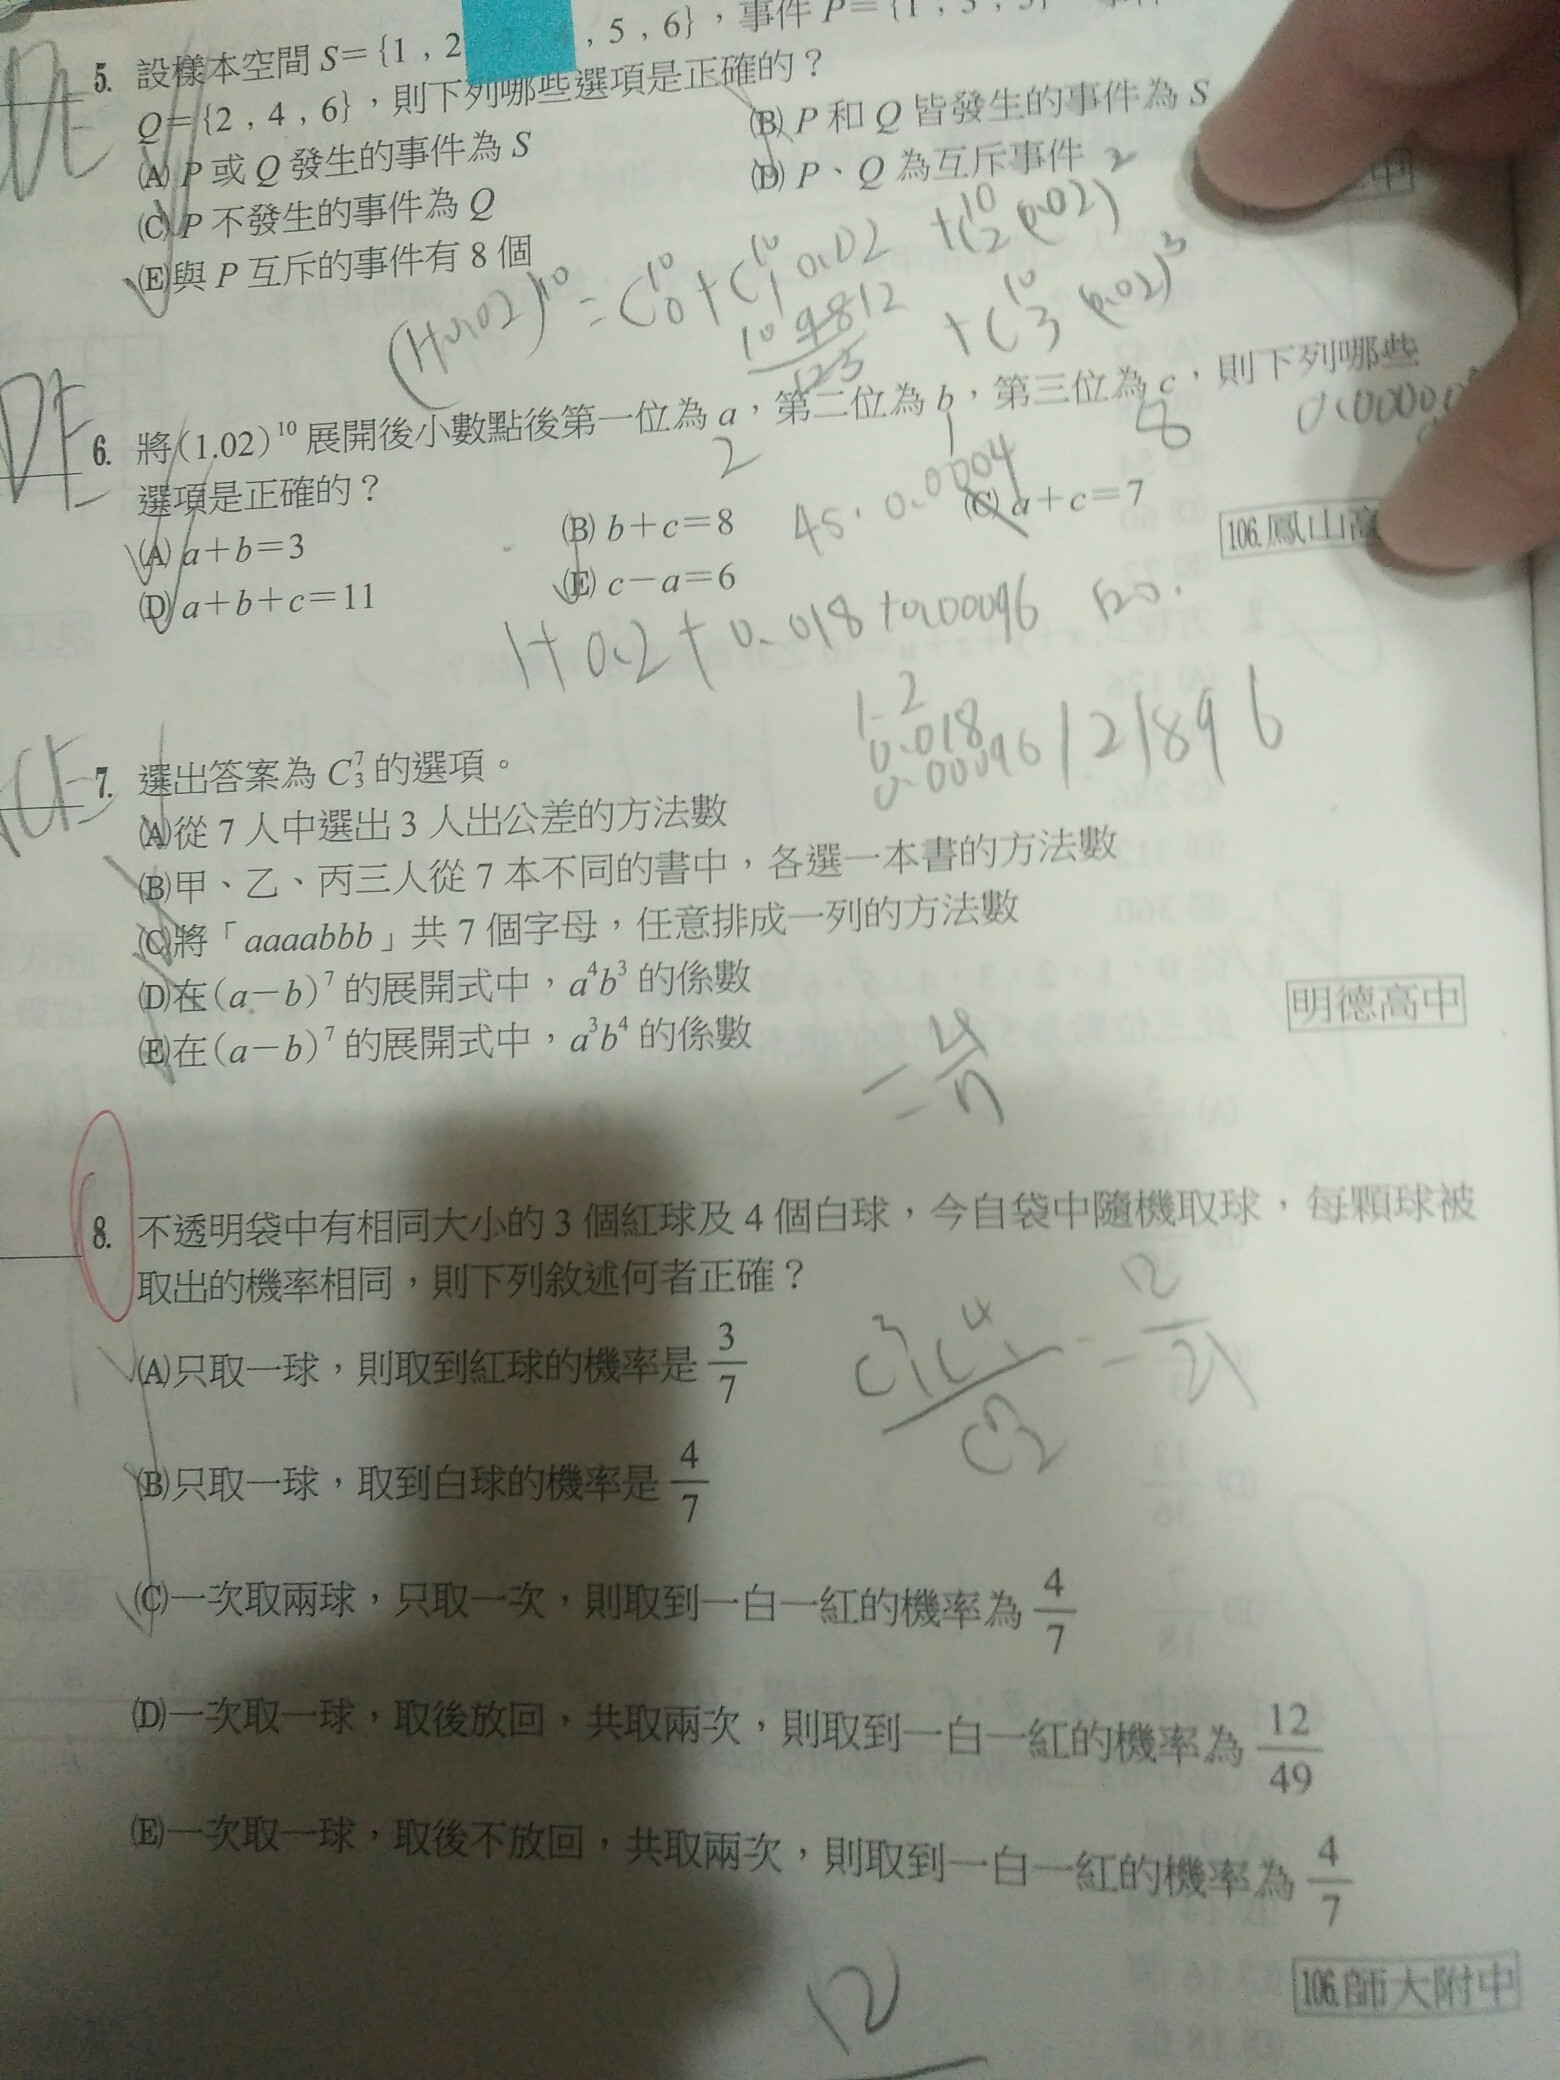 5. 設樣本空間 S={1，2 ，5，6}，事件 P={1，3，5}
Q={2，4，6}，則下列哪些選項是正確的？
(A) P 或 Q 發生的事件為 S
(B) P 和 Q 皆發生的事件為 S
(C) P 不發生的事件為 Q
(D) P、Q 為互斥事件
(E)與 P 互斥的事件有 8 個
(1+0.02)^10 = C^10_0 + C^10_1 0.02 + C^10_2 (0.02)^2
+ C^10_3 (0.02)^3
6. 將(1.02)^10 展開後小數點後第一位為 a，第二位為 b，第三位為 c，則下列哪些
2 1 8
選項是正確的？
45．0.0004
(A) a+b=3
(B) b+c=8
(C) a+c=7
106.鳳山高
(D) a+b+c=11
(E) c-a=6
1+0.2+0.018+0.00096 120.
1.2
0.018
0.00096 121896
7. 選出答案為 C^7_3 的選項。
(A)從 7 人中選出 3 人出公差的方法數
(B)甲、乙、丙三人從 7 本不同的書中，各選一本書的方法數
(C)將「aaaabbb」共 7 個字母，任意排成一列的方法數
(D)在(a-b)^7 的展開式中，a^4b^3 的係數
(E)在(a-b)^7 的展開式中，a^3b^4 的係數
明德高中
= 4/7
8. 不透明袋中有相同大小的 3 個紅球及 4 個白球，今自袋中隨機取球，每顆球被
取出的機率相同，則下列敘述何者正確？
(A)只取一球，則取到紅球的機率是 3/7
C^3_1 C^4_1 / C^7_2 = 12/21
(B)只取一球，取到白球的機率是 4/7
(C)一次取兩球，只取一次，則取到一白一紅的機率為 4/7
(D)一次取一球，取後放回，共取兩次，則取到一白一紅的機率為 12/49
(E)一次取一球，取後不放回，共取兩次，則取到一白一紅的機率為 4/7
106.師大附中
12